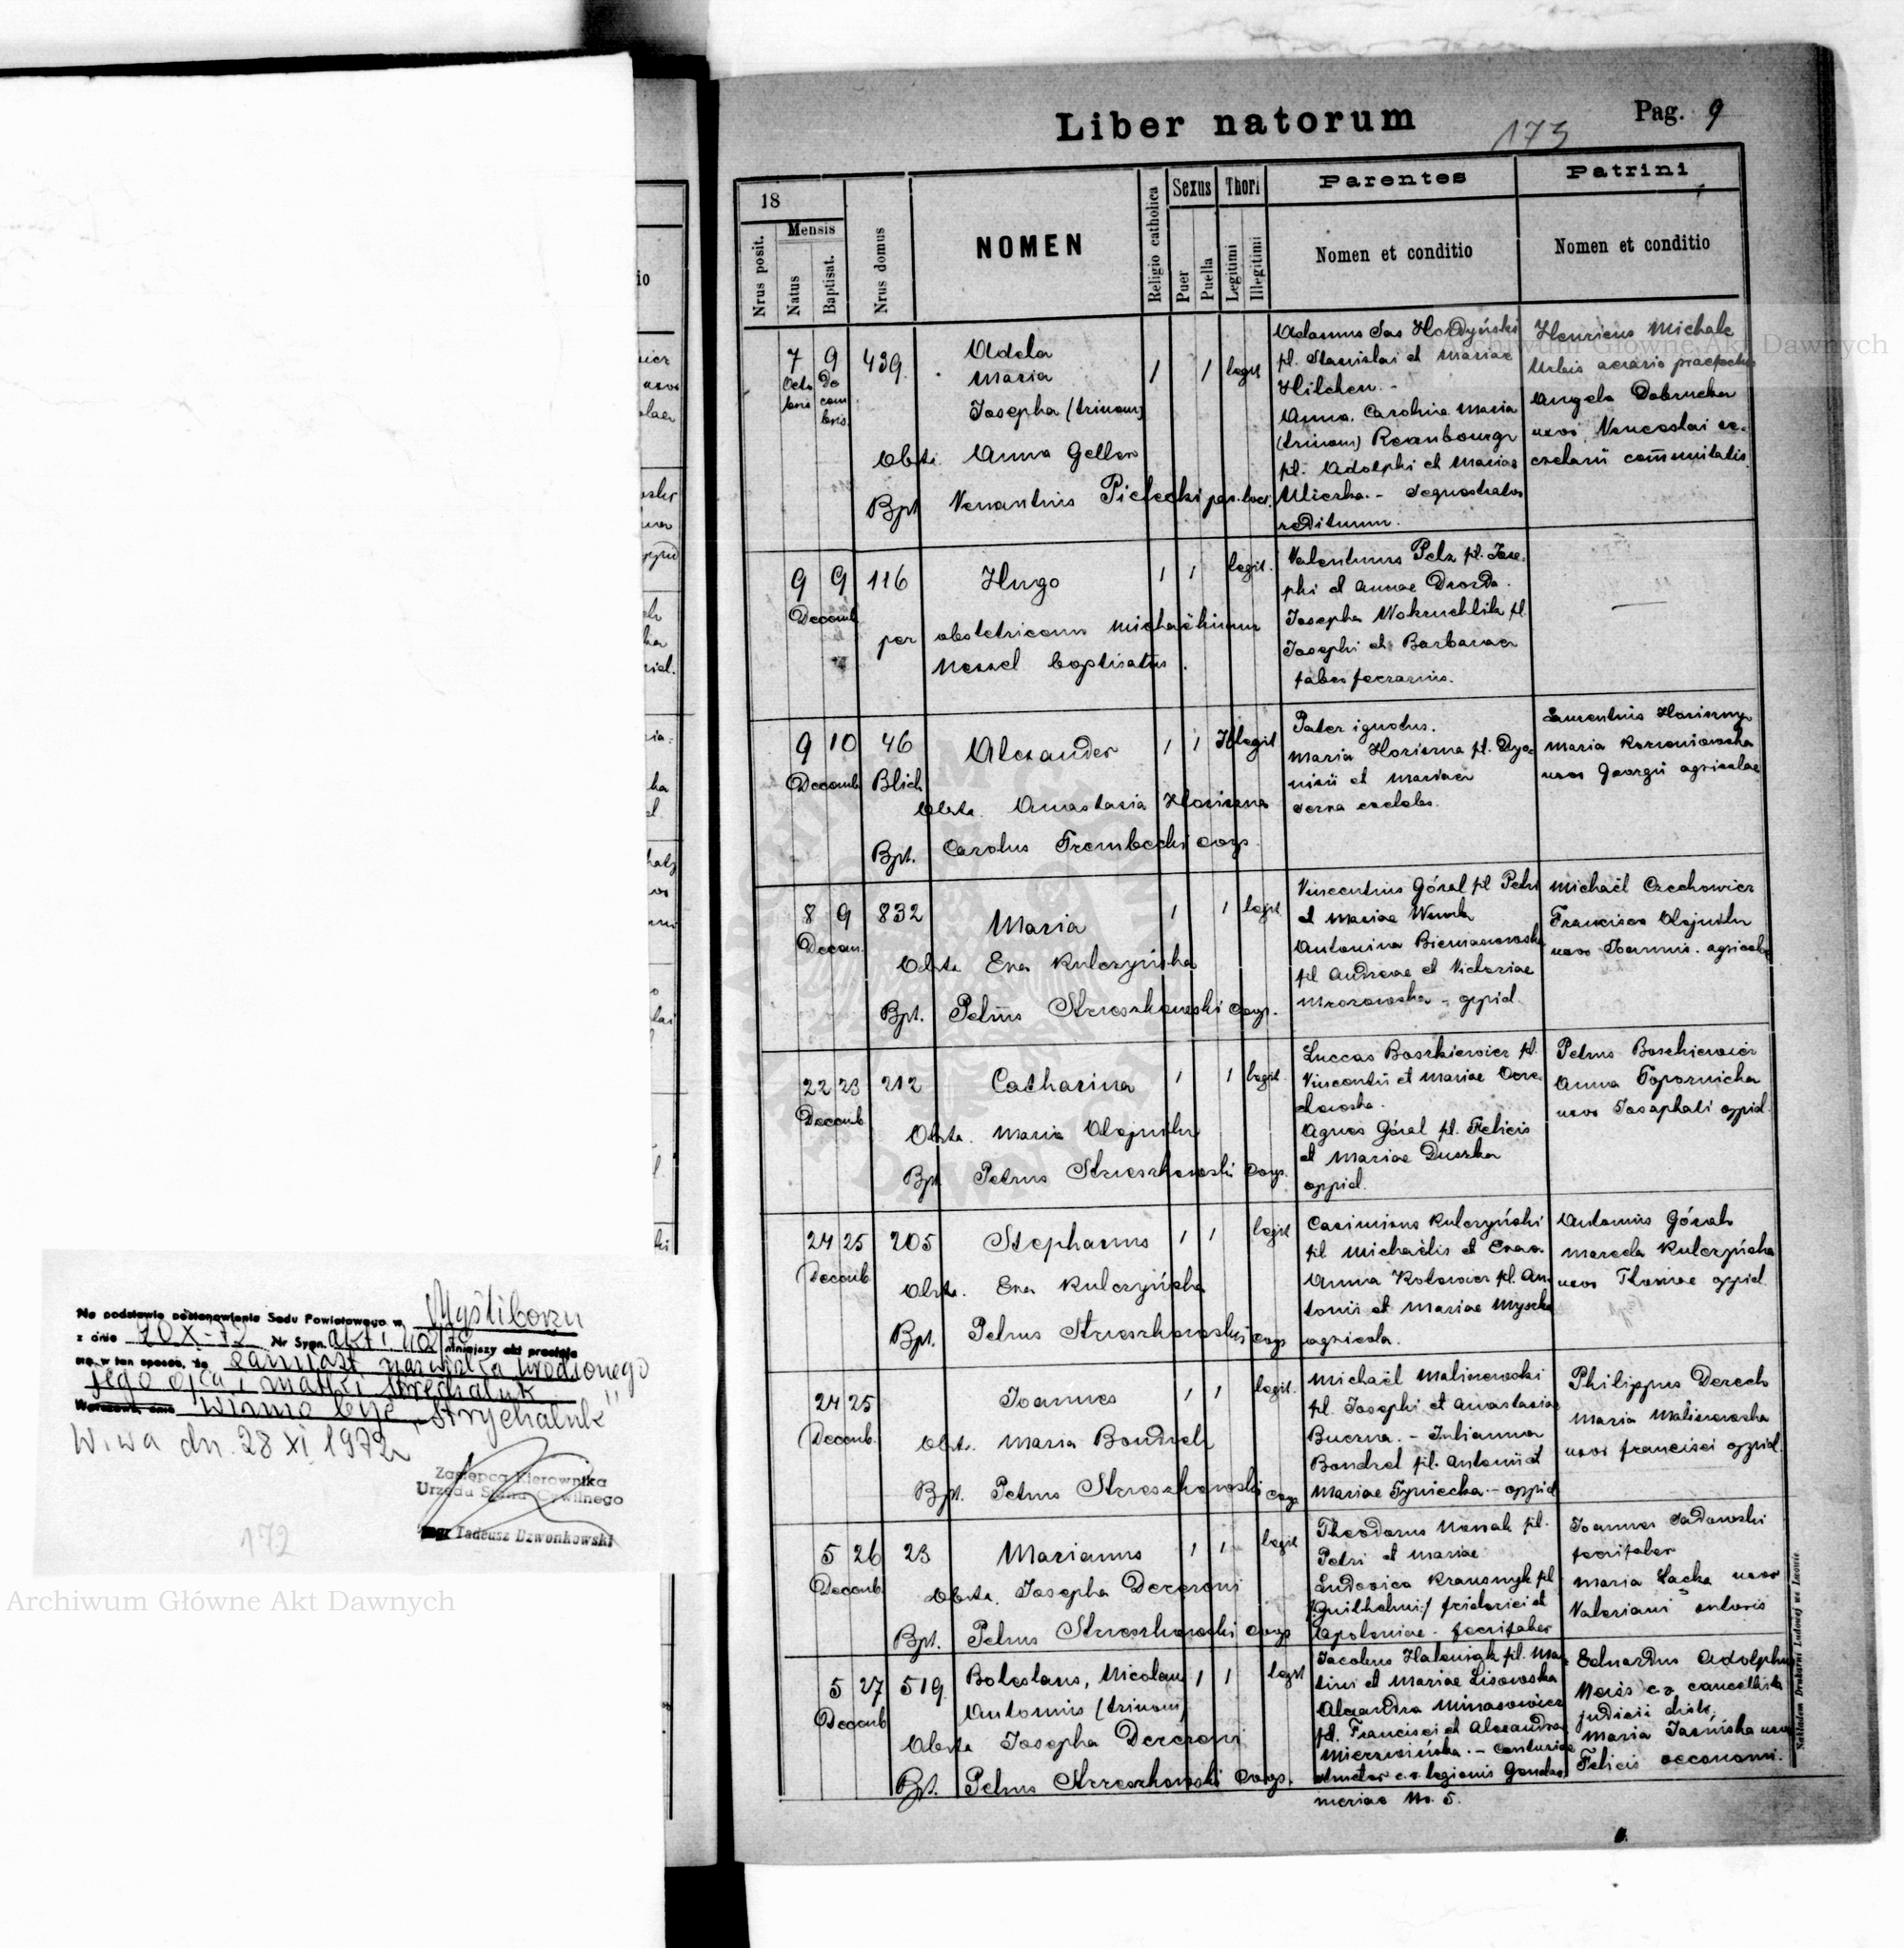 Liber natorum
Pag. 9
173
18
Nrus posit.
Mensis
Natus
Baptisat.
Nrus domus
NOMEN
Religio catholica
Sexus
Puer
Puella
Thori
Legitimi
Illegitimi
Parentes
Nomen et conditio
Patrini
Nomen et conditio
7 9 439.
Octobris Decembris
Adela
Maria
Josepha (trinom)
Obsti. Anna Geller
Bpt Venantius Pielecki par. loci.
1 1 legit
Adamus Sas Hordyński
fil. Stanislai et Mariae
Hilchen. -
Anna, Carolina Maria
(trinom)
fil. Adolphi et Mariae
redituum.
Henricus Michale
Urbis aerario praefectus
Angela Dobrucka
uxor Venceslai
communitatis.
9 9 116
Decemb
Hugo
per obstetricem Michaëlinam
Nessel baptisatus.
1 1 legit.
Valentinus Pelz fil. Jose-
phi et Annae Drozda.
Josepha Wokruchlik fil
Josephi et Barbarae
faber ferrarius.
9 10 46
Decemb Blich
Alexander
Obste. Anastasia Horiszna
Bpt. Carolus Trembecki Coops
1 1 Illegit
Pater ignotus.
Maria Horiszna fil. Dyo-
nisii et Mariae
serva caelebs.
Laurentius Horiszny
Maria
uxor Georgii agricolae
8 9 832
Decem.
Maria
Obste. Eva Kulczyńska
Bpt. Petrus Strzeszkowski Coops.
1 1 legit
Vincentius Góral fil Petri
et Mariae
Antonina
fil Andreae et Victoriae
Mrozowska - oppid.
Michaël Czechowicz
Francisca Olejnik
uxor Joannis. agricolae
22 23 212
Decemb
Catharina
Obste. Maria Olejnik
Bpt Petrus Strzeszkowski Coops.
1 1 legit.
Luccas Baszkiewicz fil.
Vincentii et Mariae
Agnes Góral fil. Felicis
et Mariae Duszka
oppid.
Petrus Baszkiewicz
Anna Topornicka
uxor Josaphati oppid.
24 25 205
Decemb
Stephanus
Obste. Eva Kulczyńska
Bpt. Petrus Strzeszkowski Coops
1 1 legit
Casimirus Kulczyński
fil Michaëlis et Evae
Anna Kotowicz fil. An-
tonii et Mariae Myszka
agricola.
Antonius Góral
Marcela Kulczyńska
uxor Thomae oppid.
24 25
Decemb.
Joannes
Obste. Maria Bondrel
Bpt. Petrus Strzeszkowski Coops
1 1 legit.
Michaël Malinowski
fil. Josephi et Anastasiae
Buczna. - Julianna
Bondrel fil. Antonii et
Mariae Tyniecka - oppid
Philippus Derech
Maria Malinowska
uxor Francisci oppid.
5 26 23
Decemb
Marianus
Obste. Josepha Dereroni
Bpt. Petrus Strzeszkowski Coops
1 1 legit
Theodorus Nossal fil.
Petri et Mariae
Ludovica fil
(Guilhelmi) Friderici et
Apoloniae - ferrifaber
Joannes Sadowski
ferrifaber
Maria Łacka uxor
Valeriani sutoris
5 27 519
Decemb
Boleslaus, Nicolaus
Antonius (trinom)
Obste Josepha Dereroni
Bpt. Petrus Strzeszkowski Coops.
1 1 legit
Jacobus fil. Mar-
tini et Mariae Lisowska
Alexandra Minasowicz
fil. Francisci et Alexandrae
Mierzwińska. - Centuriae
ductor c.r. legionis Gendar-
meriae No. 5.
Eduardus Adolphus
Weiss c.r. cancellista
judicii distr.
Maria Jasińska uxor
Felicis oeconomi.
Nakładem Drukarni Ludowej we Lwowie.
Na podstawie postanowienia Sądu Powiatowego w Myśliborzu
z dnia 20 X-72 Nr Sygn. akt niniejszy akt prostuje
się w ten sposób, że zamiast nazwiska urodzonego
jego ojca i matki Strechaluk
Warszawa, dnia winno być "Strychaluk"
W-wa dn. 28 XI 1972r
Zastępca Kierownika
Urzędu Stanu Cywilnego
mgr Tadeusz Dzwonkowski
172
Archiwum Główne Akt Dawnych
Archiwum Główne Akt Dawnych